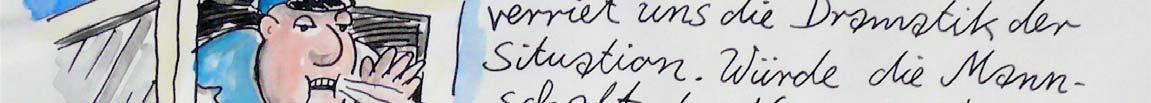 verriet uns die Dramatik der
Situation. Würde die Mann-